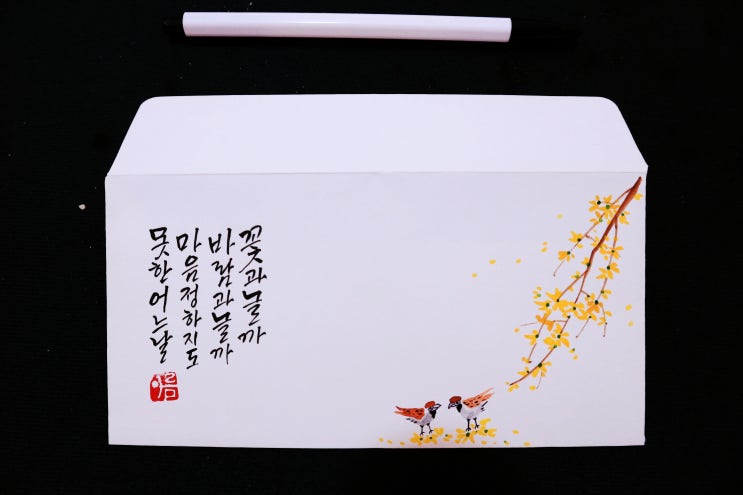 꽃과놀까
바람과놀까
마음정하지도
못한어느날